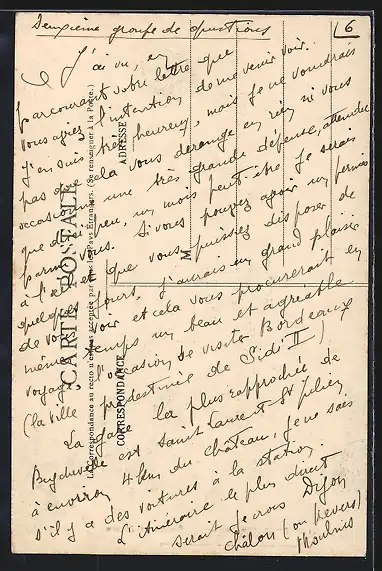 Deuxième groupe de questions
6
J'ai vu, en
parcourant votre lettre que
vous aviez l'intention de me venir voir.
J'en suis très heureux, mais je ne voudrais
pas que cela vous dérange en rien ni vous
occasionne une très grande dépense, attendu
que d'ici peu, un mois peut-être je serai
parmi vous. Si vous pouvez avoir un permis
à l'œil et que vous puissiez disposer de
quelques jours, j'aurais un grand plaisir
de vous voir et cela vous procurerait en
même temps un beau et agréable
voyage et l'occasion de visiter Bordeaux
(la ville prédestinée de Sidi II)
La gare la plus rapprochée de
est Saint-Laurent-St Julien
à environ 4 km du château, je ne sais
s'il y a des voitures à la station.
L'itinéraire le plus direct
serait je crois Dijon
Châlon (ou Nevers)
Moulins
CARTE POSTALE
La Correspondance au recto n'est pas acceptée par tous les Pays Étrangers. (Se renseigner à la Poste.)
CORRESPONDANCE
ADRESSE
M